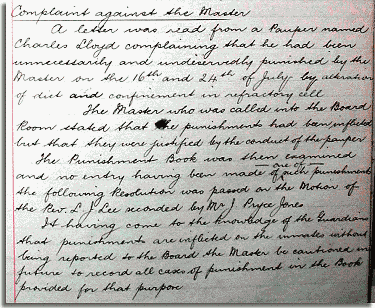 Complaint against the Master
A letter was read from a Pauper named
Charles Lloyd complaining that he had been
unnecessarily and undeservedly punished by the
Master on the 16th and 24th of July by alteration
of diet and confinement in refractory cell
The Master who was called into the Board
Room stated that the punishments had been inflicted
but that they were justified by the conduct of the pauper
The Punishment Book was then examined
and no entry having been made of such punishment
the following Resolution was passed on the Motion of
the Rev. L J Lee seconded by Mr J Pryce Jones
It having come to the knowledge of the Guardians
that punishments are inflicted on the inmates without
being reported to the Board the Master be cautioned in
future to record all cases of punishment in the Book
provided for that purpose